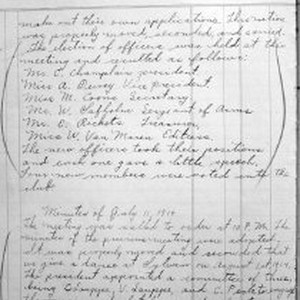 make out their own applications. This notice
was properly moved, seconded, and carried.
The election of officers was held at this
meeting and resulted as follows:
Mr. C. Champlain president
Miss A. Dewey Vice president
Miss M. Coons Secretary
Mr. W. Sergeant of Arms
Mr. O. Rockets Treasurer
Miss W. Van Maren Editress.
The new officers took their positions
and each one gave a little speech.
Four new members were voted into the
club
Minutes of July 11, 1914.
The meeting was called to order at 10 P.M. The
minutes of the previous meeting were adopted.
It was properly moved and seconded that
we give a dance at on August 1st, 1914.
The president appointed a committee of three,
being V. and C.